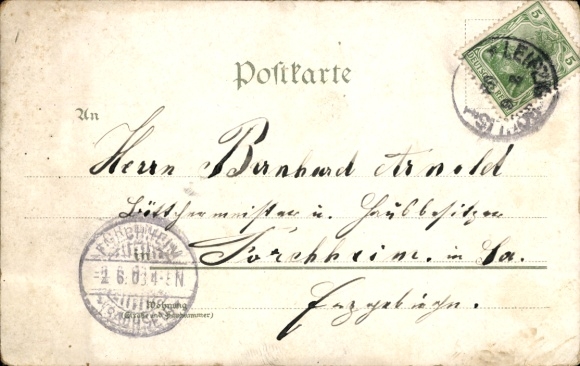 Postkarte
5
5
LEIPZIG
An
Herrn Bernhard Arnold
Böttchermeister u. Hausbesitzer
Forchheim. in Sa.
Erzgebirge.
FORCHHEIM
2 6 03 4-5N
Wohnung
(Straße und Hausnummer)